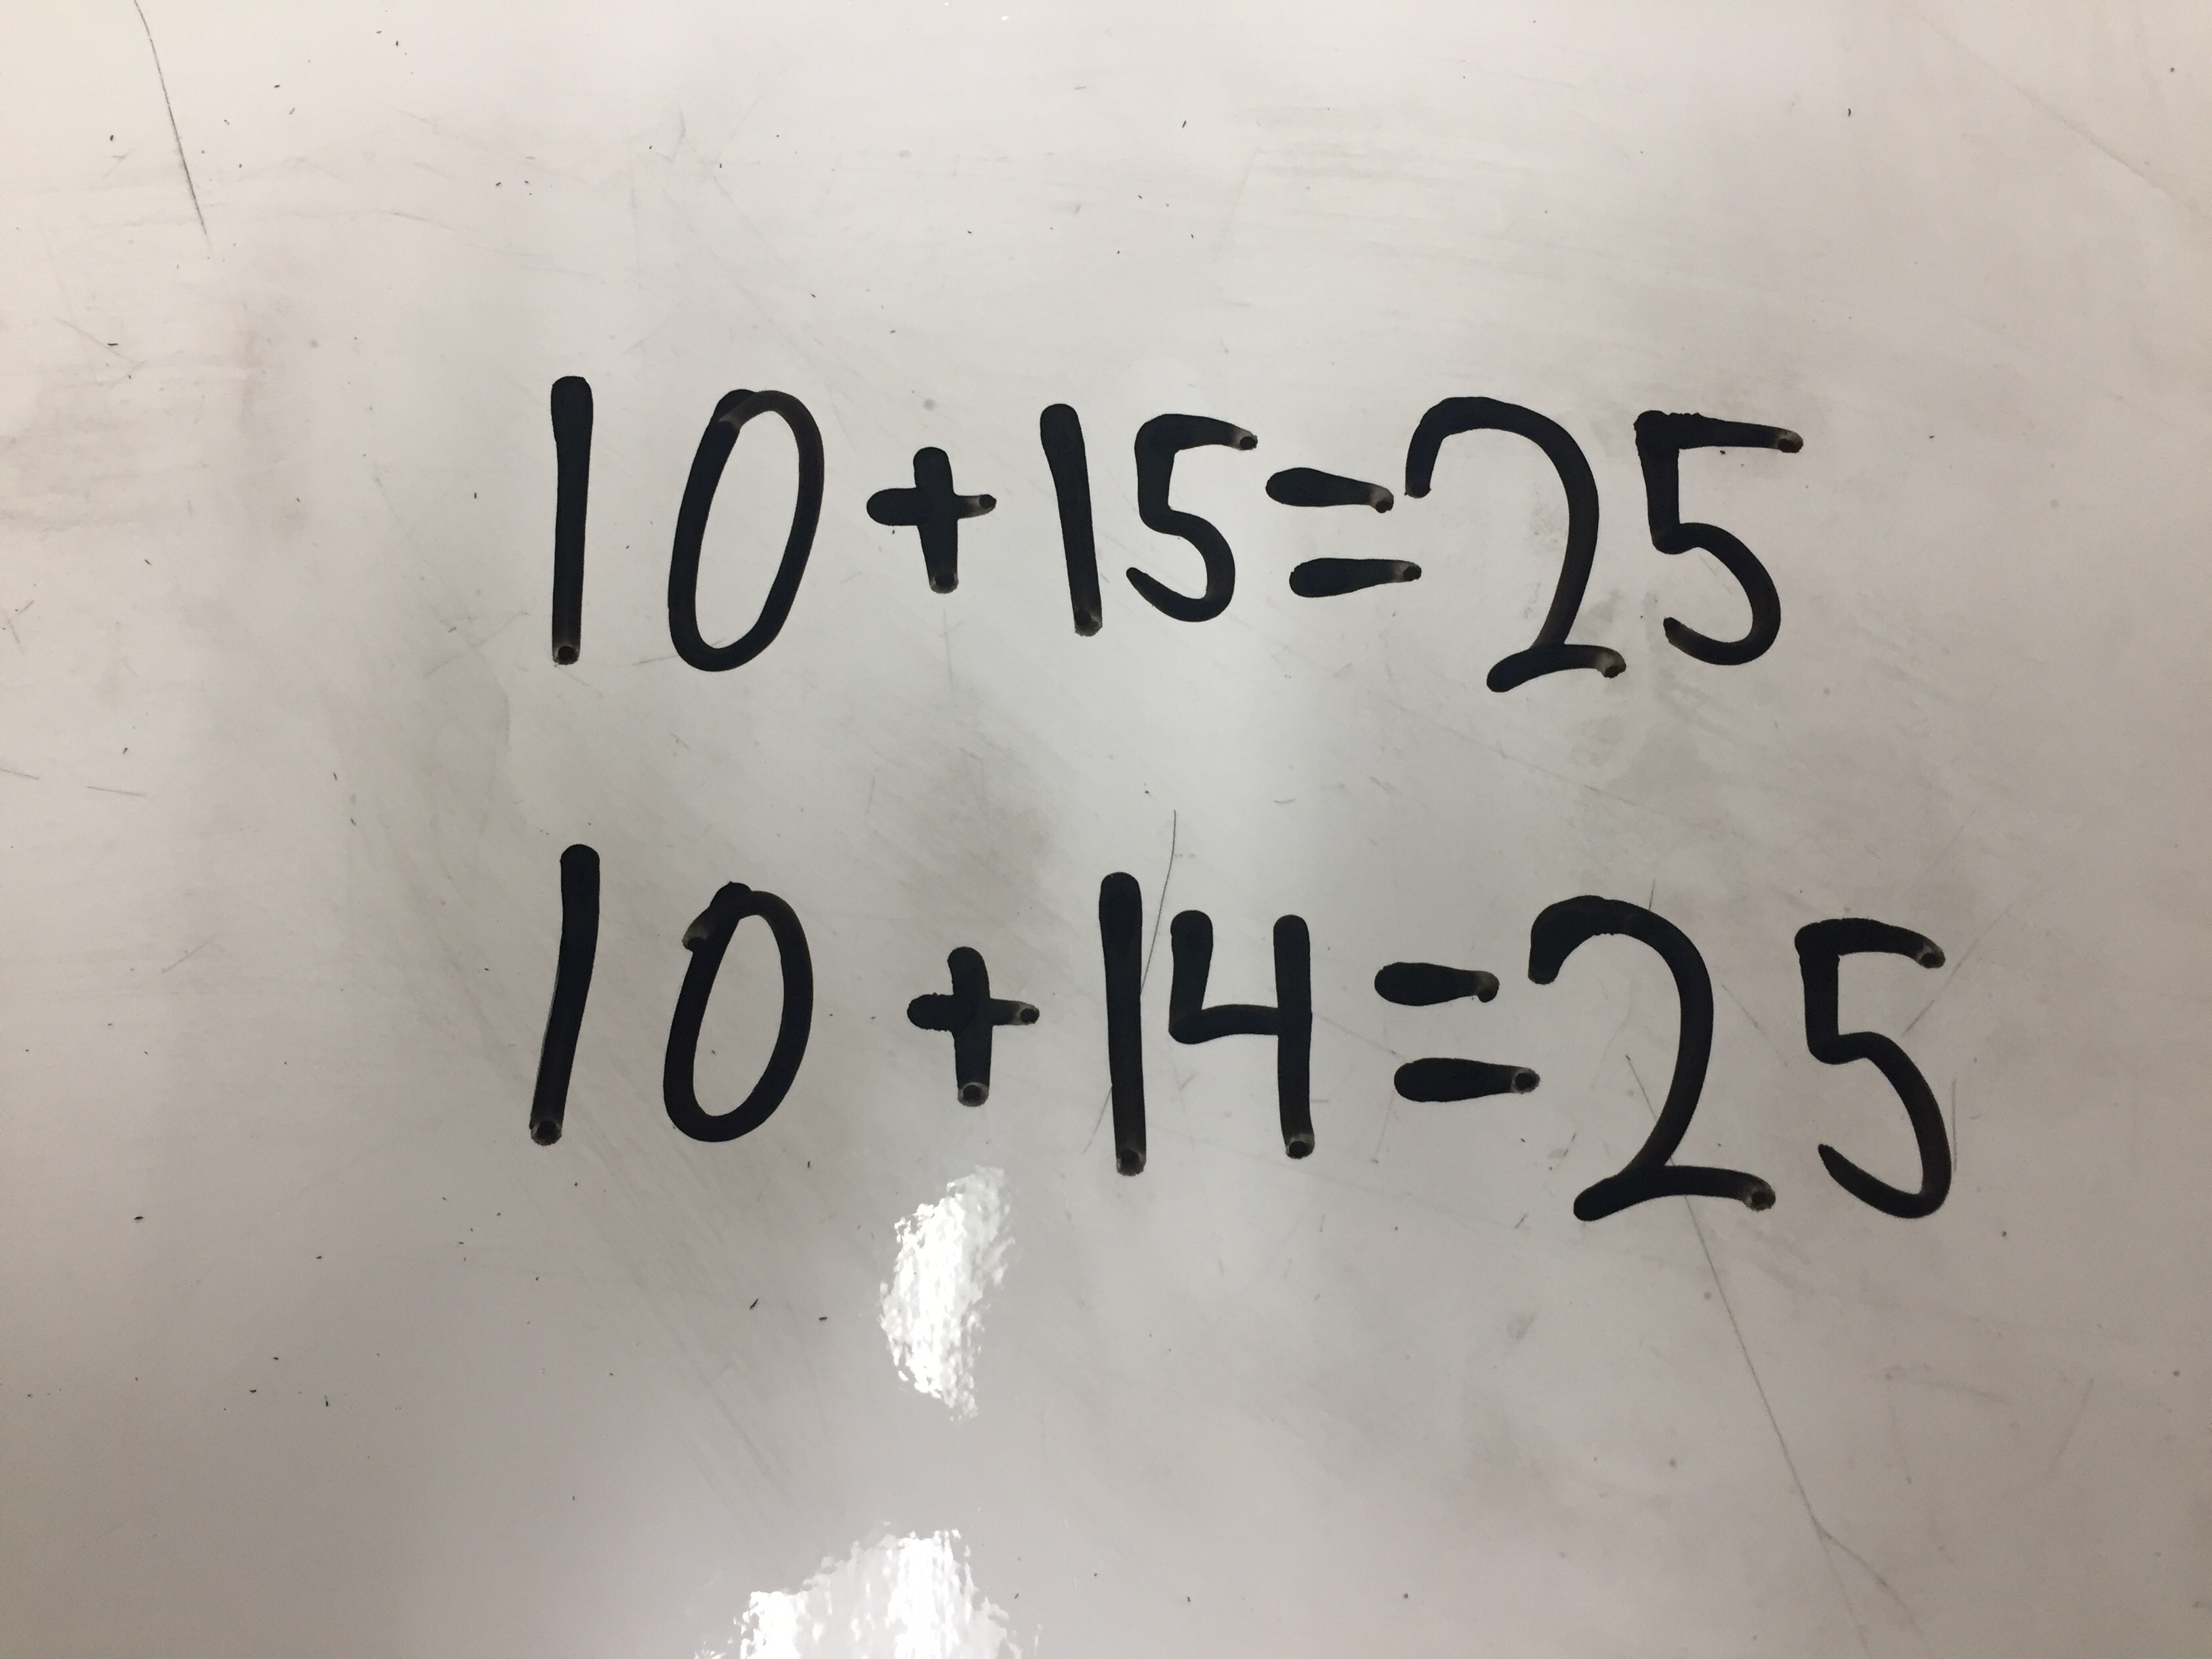 10+15=25
10+14=25